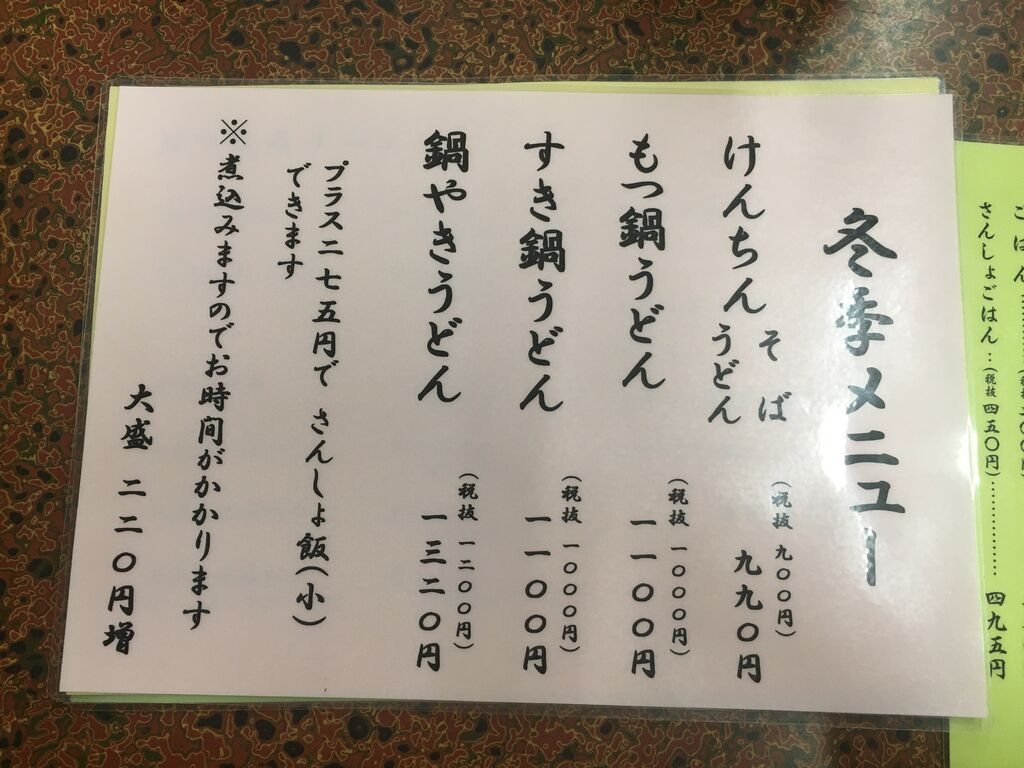 ごはん
さんしょごはん…(税抜四五〇円)………… 四九五円
冬季メニュー
けんちん そば
うどん
(税抜 九〇〇円)
九九〇円
もつ鍋うどん
(税抜 一〇〇〇円)
一一〇〇円
すき鍋うどん
(税抜 一〇〇〇円)
一一〇〇円
鍋やきうどん
(税抜 一二〇〇円)
一三二〇円
プラス二七五円で さんしょ飯(小)
できます
※煮込みますのでお時間がかかります
大盛 二二〇円増